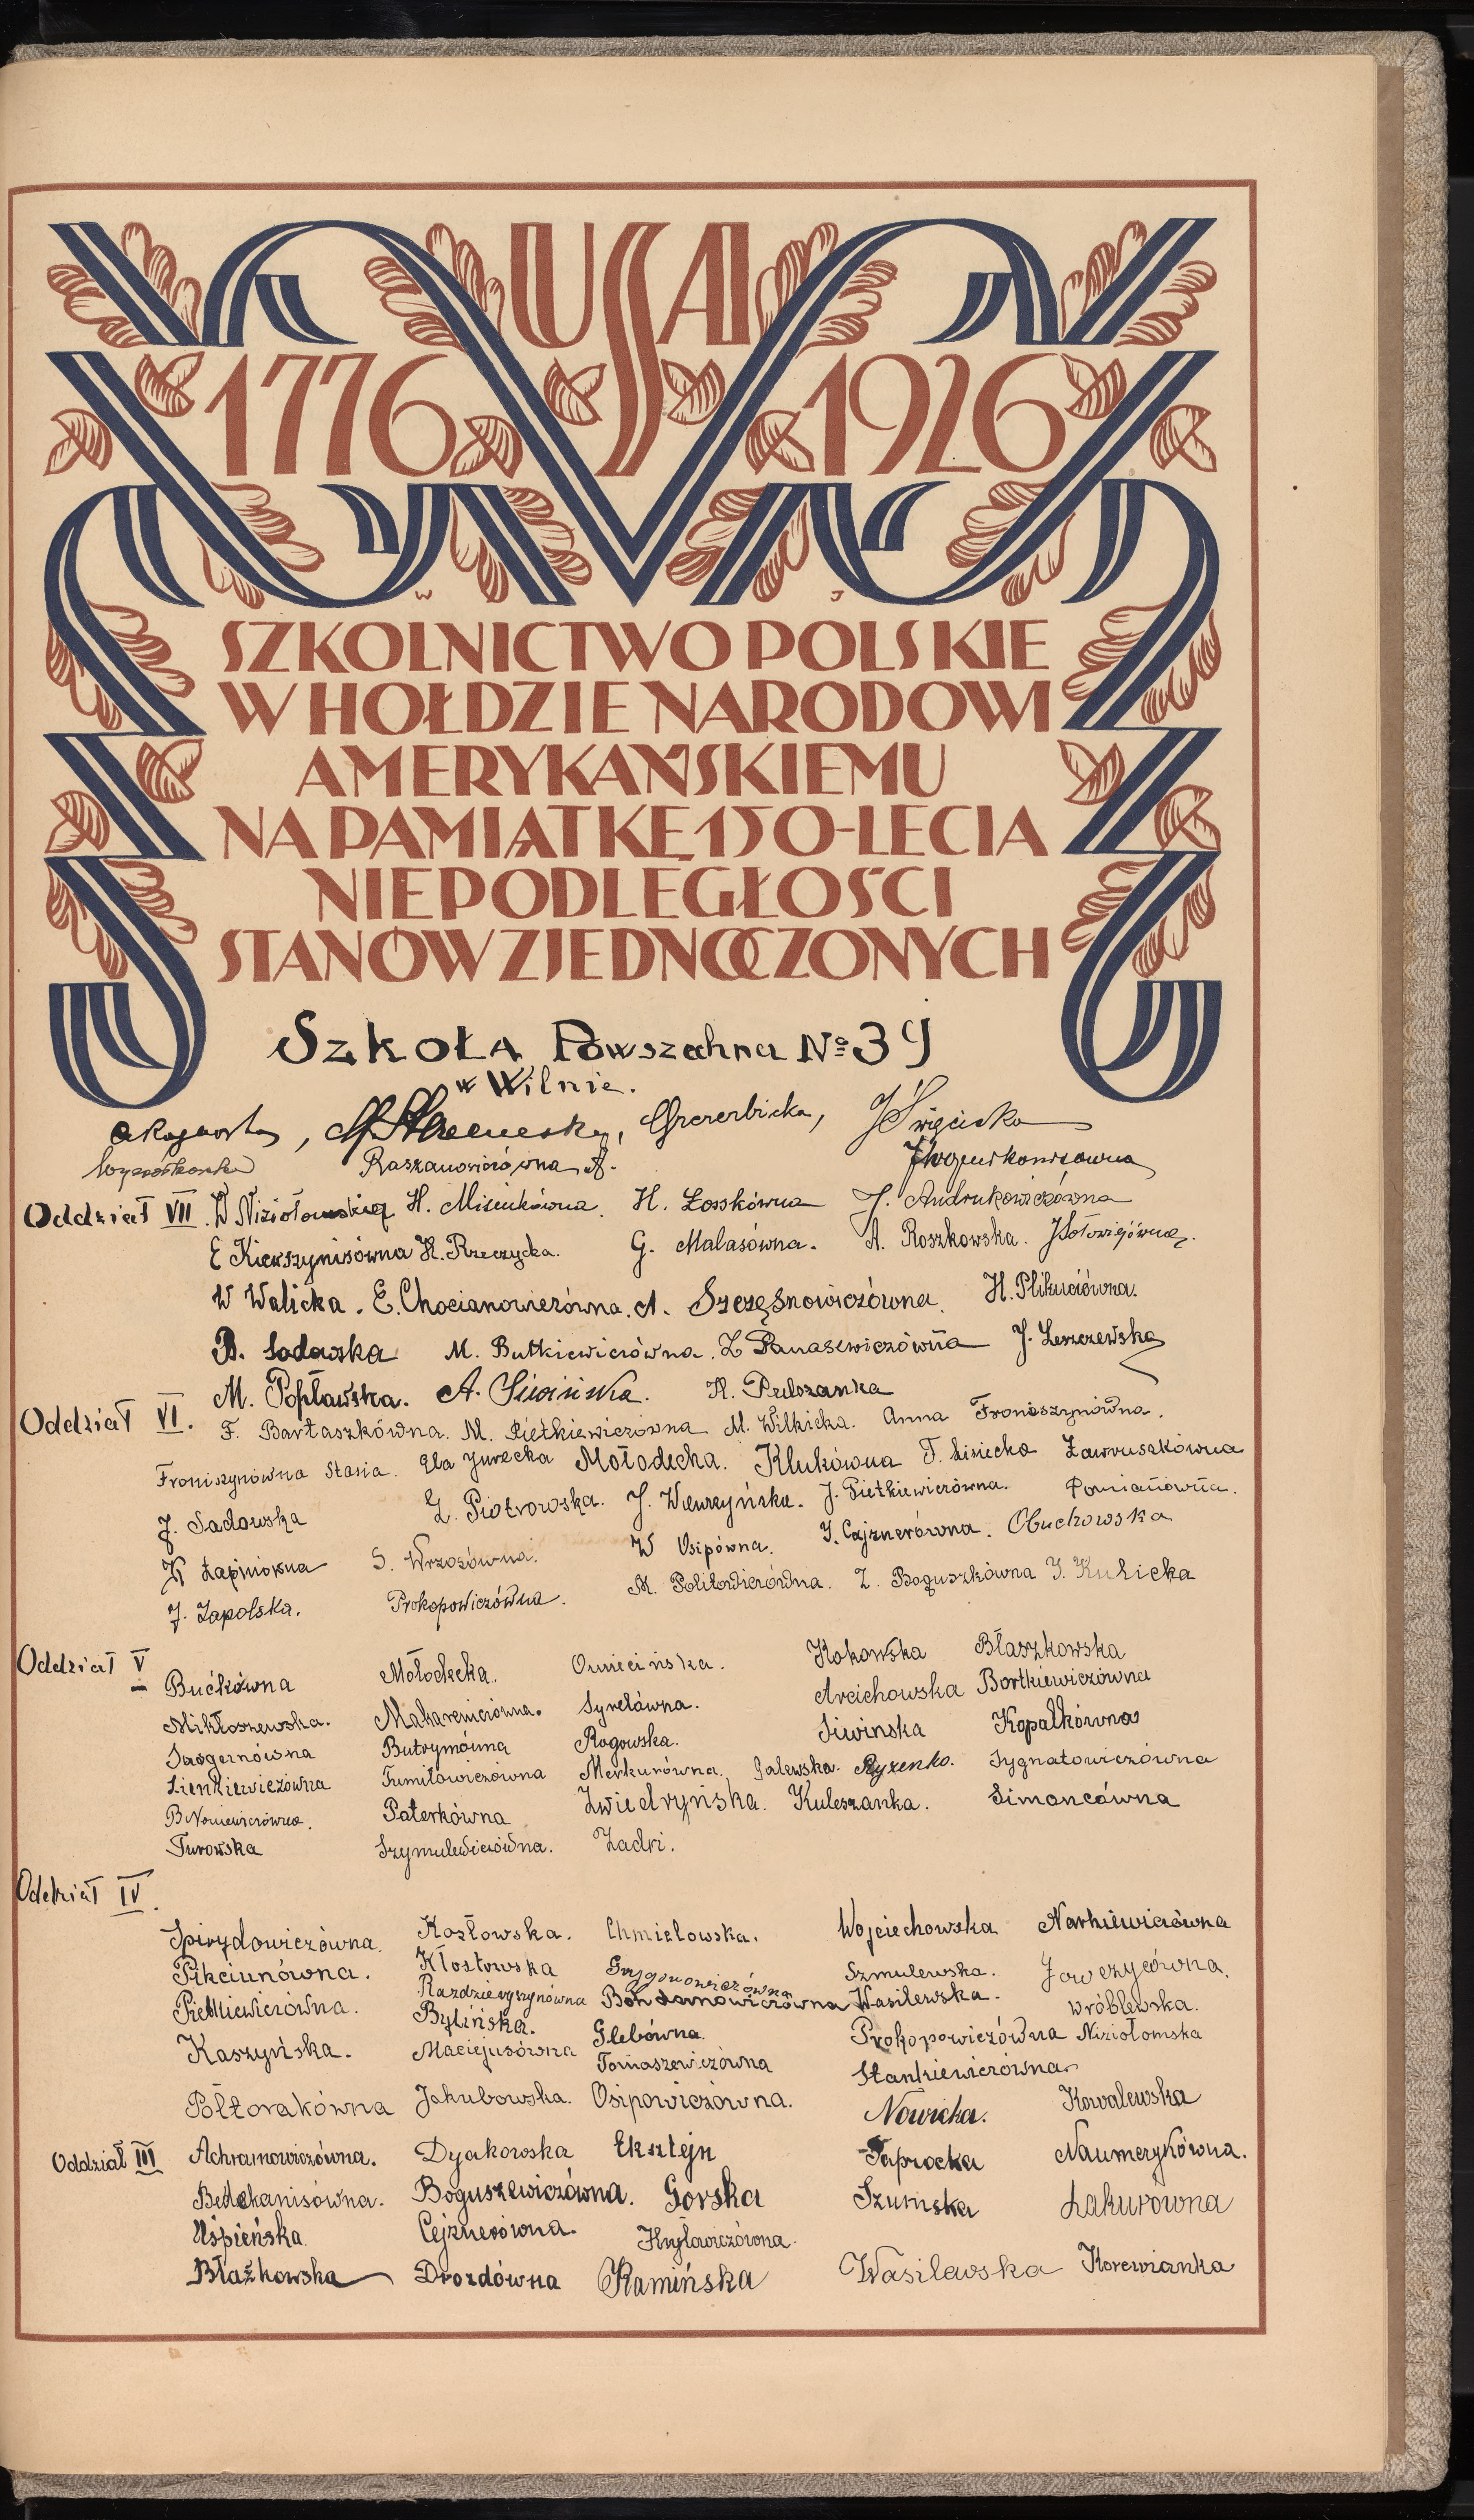 USA
1776 1926
W J
SZKOLNICTWO POLSKIE
W HOŁDZIE NARODOWI
AMERYKAŃSKIEMU
NA PAMIĄTKĘ 150-LECIA
NIEPODLEGŁOŚCI
STANÓW ZJEDNOCZONYCH
Szkoła Powszechna № 39
w Wilnie.
J Święcicka
Raszanowiczówna A.
Oddział VII. W Niziołomskia H. Misiukówna. H. Łosskówna J. Andrukowiczówna
E Kierszynisówna H. Rzeczycka. G. Malasówna. A. Roszkowska. J Sołowiejówna.
W Walicka. E. Chocianowiczówna. A. Szczęsnowiczówna. H. Plikuciówna.
B. Sadowska M. Butkiewiczówna. Z Panasewiczówna J. Leszczewska
M. Popławska. A. Siwińska. H. Pulszanka
Oddział VI. F. Bartaszkówna. M. Pietkiewiczówna M. Wilkicka. Anna Froniszynówna.
Froniszynówna Stasia. Ela Jurecka Mołodecka. Klukówna F. Lisiecka Ławruszkówna
J. Sadowska Z. Piotrowska. J. Wawrzyńska. J. Pietkiewiczówna. Pomianówna.
K Łapinówna S. Wrzosówna. W Osipówna. I. Cajznerówna. Obuchowska
J. Zapolska. Prokopowiczówna. M. Politowiczówna. Z. Boguszkówna J. Kulicka
Oddział V
Bućkówna Mołodecka. Owiecińska. Kokowska Błaszkowska
Mikłoszewska. Makarewiczówna. Syrelówna. Arcichowska Bortkiewiczówna
Butrymówna Rogowska. Siwinska Kopałkówna
Sienkiewiczówna Tumiłowiczówna Merkurówna. Galewska. Ryzenko. Sygnatowiczówna
Paterkówna Zwiedryńska. Kuleszanka. Simoncówna
Turowska Szymulewiczówna. Zadri.
Oddział IV.
Spirydowiczówna. Kozłowska. Chmielowska. Wojciechowska Narkiewiczówna
Pikciunówna. Kłostowska Grygorowiczówna Szmulewska. Jowczycówna.
Pietkiewiczówna. Razdziewyszynówna Bohdanowiczówna Wasilewska. Wróblewska.
Kaszyńska. Bylińska. Glebówna. Prokopowiczówna Niziołomska
Maciejusówna Tomaszewiczówna Stankiewiczówna
Półtorakówna Jakubowska. Osipowiczówna. Nowicka. Kowalewska
Oddział III Achramowiczówna. Dyakowska Eksztejn Paprocka Naumerykówna.
Bedekanisówna. Boguszewiczówna. Gorska Szumska Łakurówna
Uśpieńska Cejznerówna. Kryłowiczówna.
Błażkowska Drozdówna Kamińska Wasilewska Korewianka